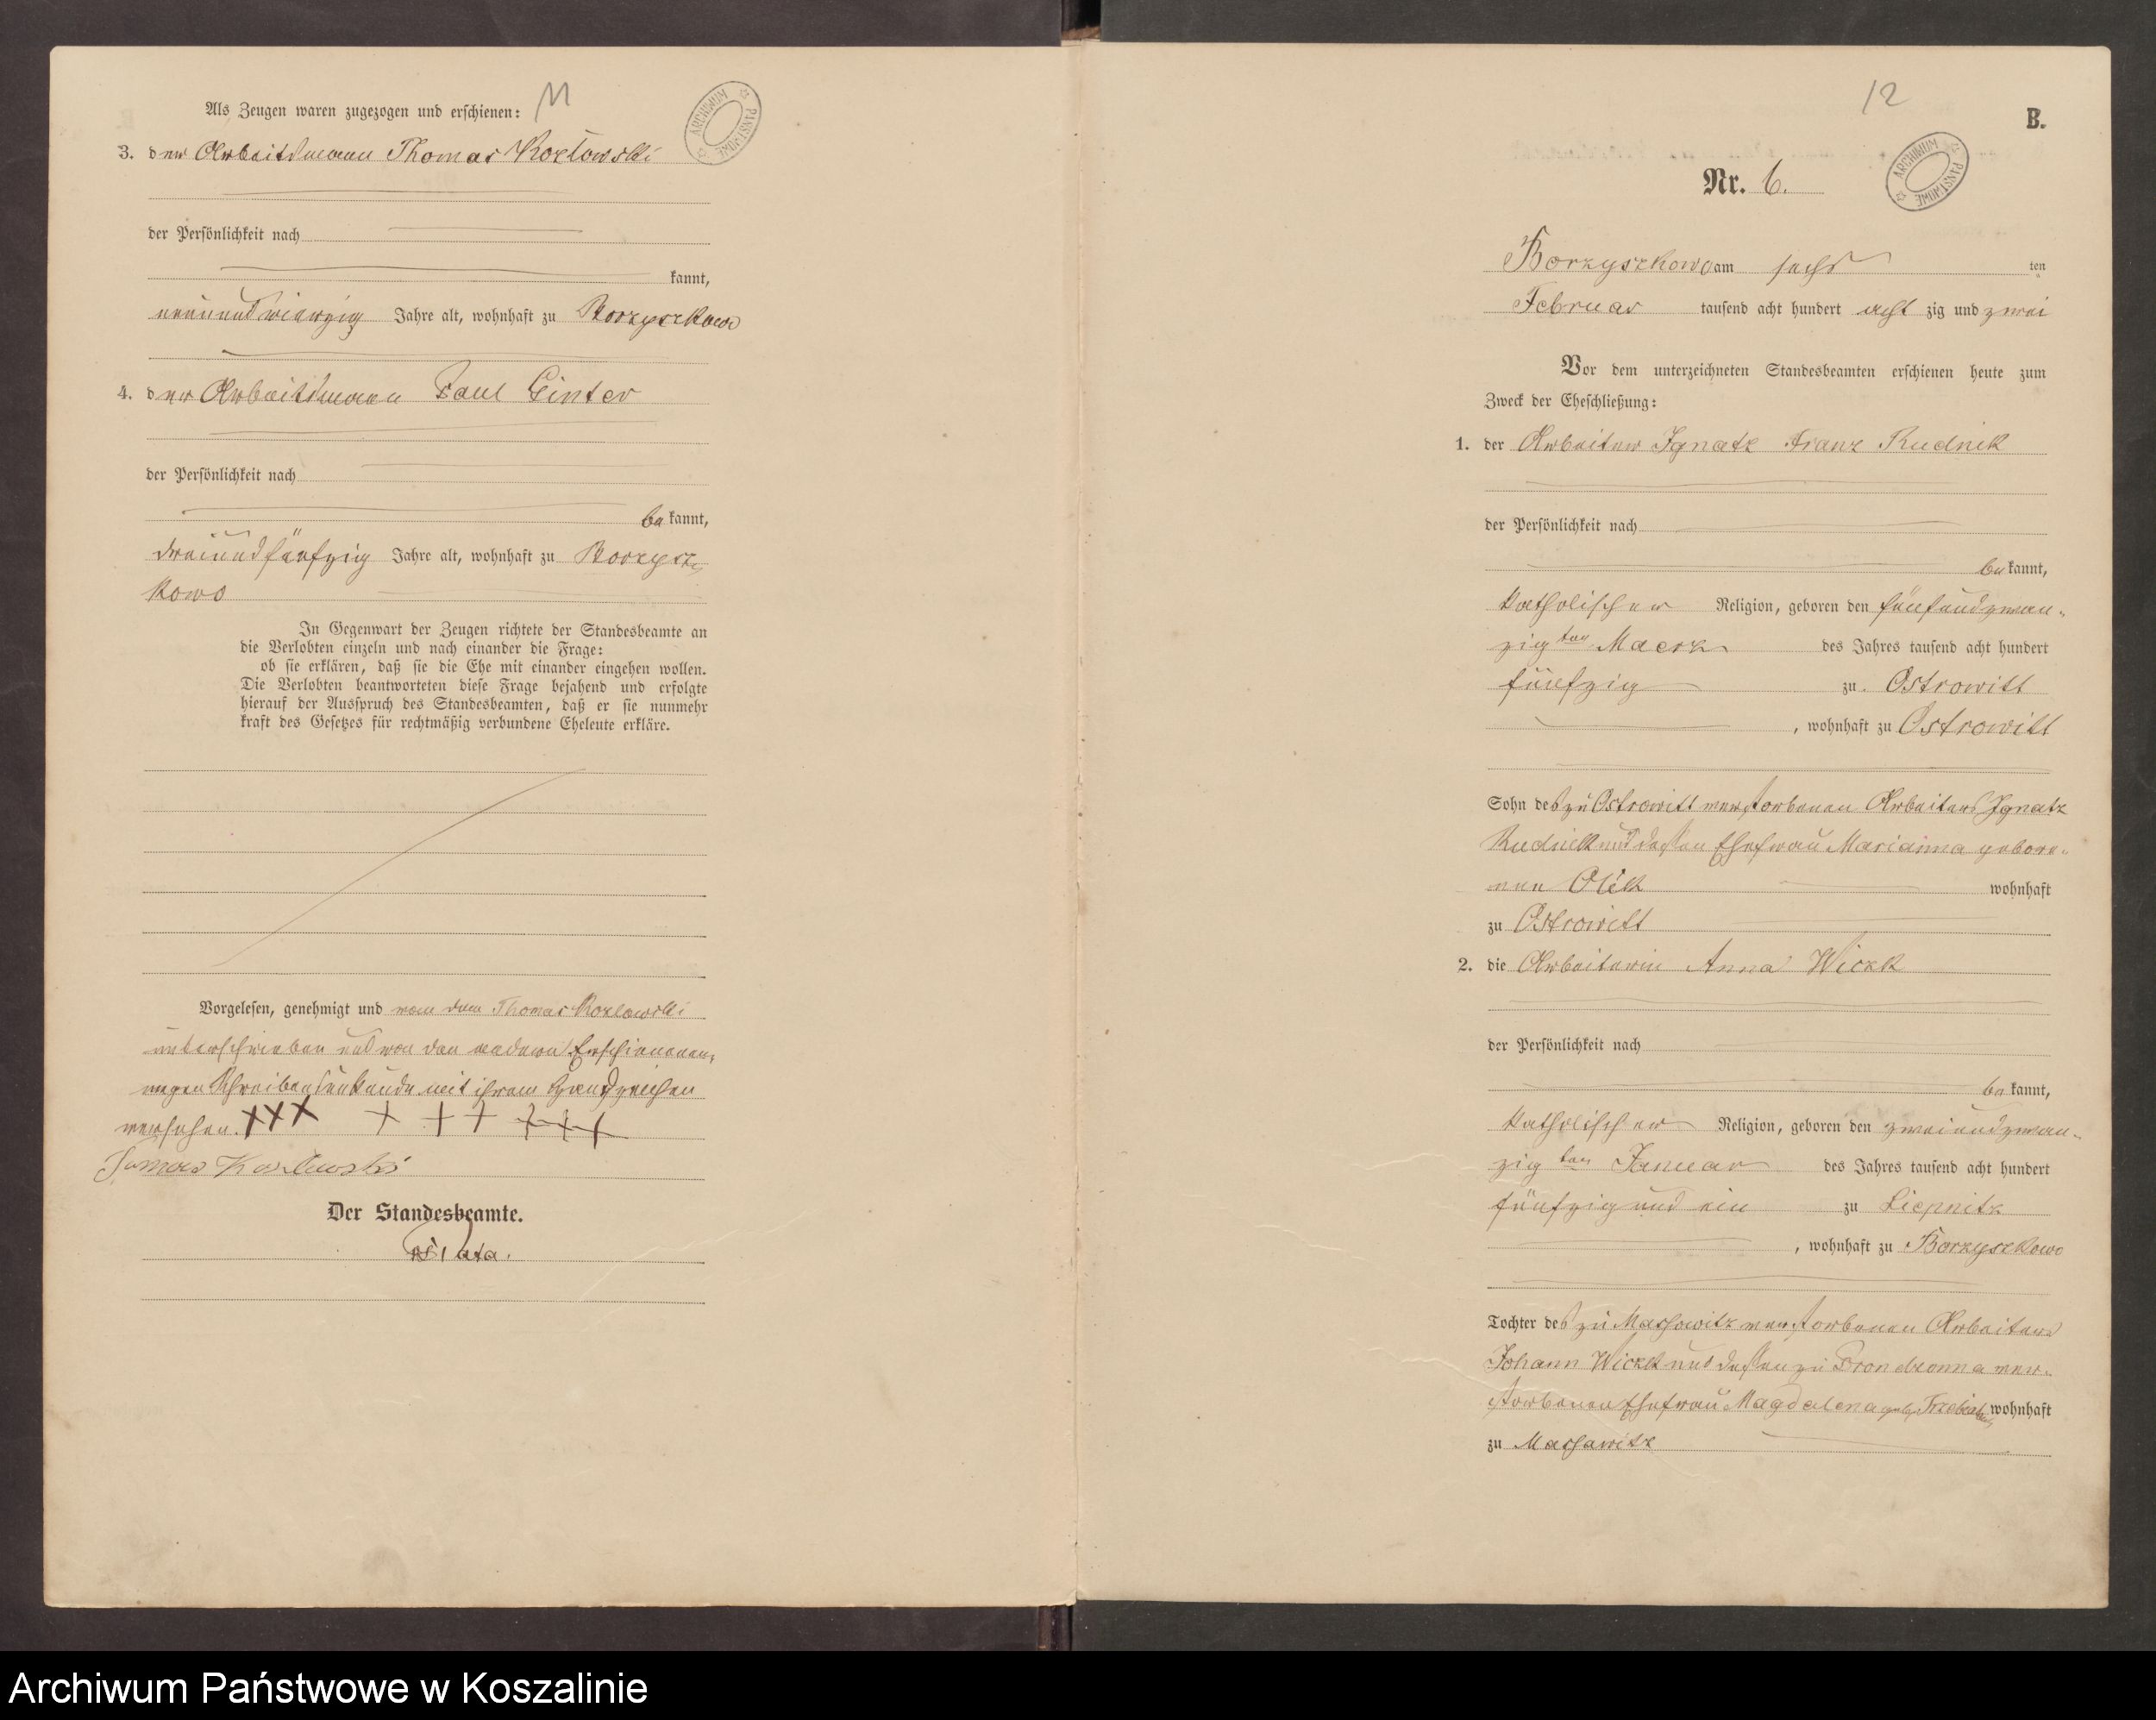 11
Als Zeugen waren zugezogen und erschienen:
ARCHIWUM PAŃSTWOWE
3. der Arbeitsmann Thomas Kozlowski
der Persönlichkeit nach
kannt,
neunundvierzig Jahre alt, wohnhaft zu Borzyszkowo
4. der Arbeitsmann Paul Ginter
der Persönlichkeit nach
bekannt,
dreiundfünfzig Jahre alt, wohnhaft zu Borzysz-
kowo
In Gegenwart der Zeugen richtete der Standesbeamte an
die Verlobten einzeln und nach einander die Frage:
ob sie erklären, daß sie die Ehe mit einander eingehen wollen.
Die Verlobten beantworteten diese Frage bejahend und erfolgte
hierauf der Ausspruch des Standesbeamten, daß er sie nunmehr
kraft des Gesetzes für rechtmäßig verbundene Eheleute erkläre.
Vorgelesen, genehmigt und von dem Thomas Kozlowski
unterschrieben und von den andern Erschienenen,
wegen Schreibensunkunde mit ihrem Handzeichen
versehen. +++ + + + +++
Der Standesbeamte.
12
B.
ARCHIWUM PAŃSTWOWE
Nr. 6.
Borzyszkowo am sechs ten
Februar tausend acht hundert acht zig und zwei
Vor dem unterzeichneten Standesbeamten erschienen heute zum
Zweck der Eheschließung:
1. der Arbeiter Ignatz Franz Rudnik
der Persönlichkeit nach
bekannt,
katholischer Religion, geboren den fünfundzwan-
zigten Maerz des Jahres tausend acht hundert
fünfzig zu Ostrowitt
, wohnhaft zu Ostrowitt
Sohn des zu Ostrowitt verstorbenen Arbeiters Ignatz
Rudnik und dessen Ehefrau Marianna gebore-
nen Olik wohnhaft
zu Ostrowitt
2. die Arbeiterin Anna Wiczk
der Persönlichkeit nach
bekannt,
katholischer Religion, geboren den zweiundzwan-
zigten Januar des Jahres tausend acht hundert
fünfzig und ein zu Liepnitz
, wohnhaft zu Borzyszkowo
Tochter des zu Massowitz verstorbenen Arbeiters
Johann Wiczk und dessen zu Prondzonna ver-
storbenen Ehefrau Magdalena geb. wohnhaft
zu Massowitz
Archiwum Państwowe w Koszalinie